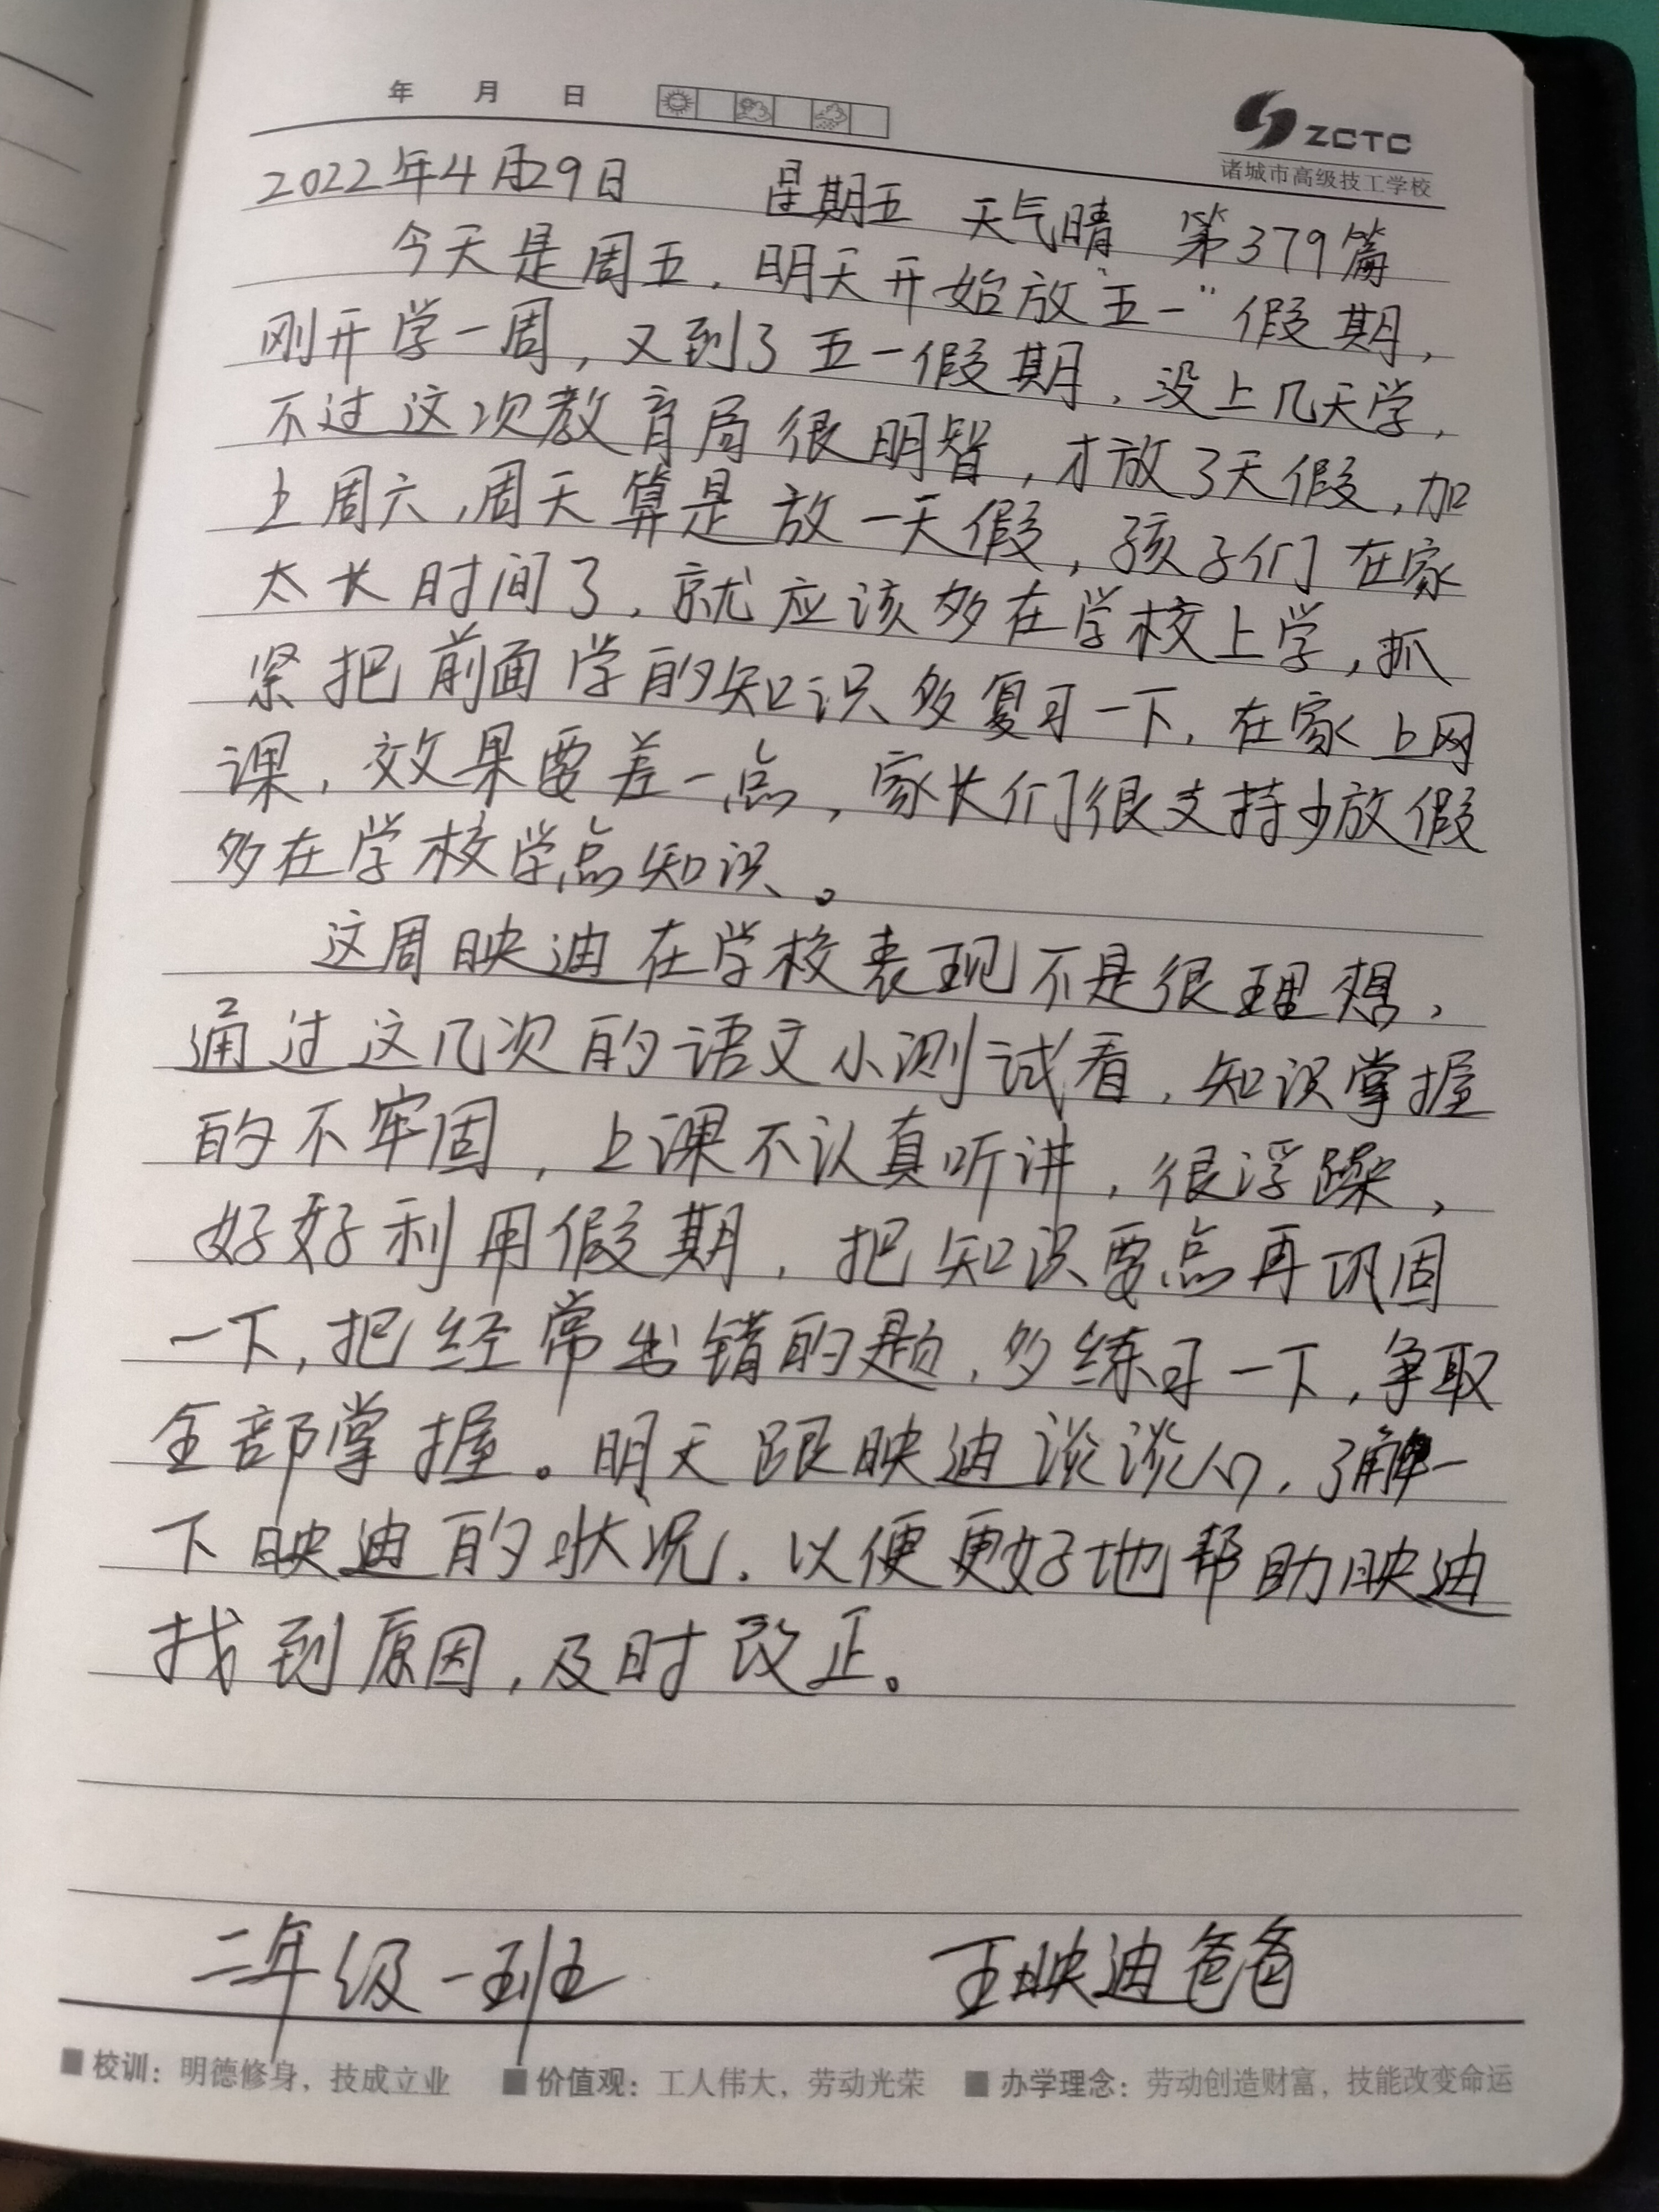 年 月 日
ZCTC
诸城市高级技工学校
2022年4月29日 星期五 天气晴 第379篇
今天是周五，明天开始放“五一”假期，
刚开学一周，又到了五一假期，没上几天学，
不过这次教育局很明智，才放了天假，加
上周六，周天算是放一天假，孩子们在家
太长时间了，就应该多在学校上学，抓
紧把前面学的知识多复习一下，在家上网
课，效果要差一点，家长们很支持少放假
多在学校学点知识。
这周映迪在学校表现不是很理想，
通过这几次的语文小测试看，知识掌握
的不牢固，上课不认真听讲，很浮躁，
好好利用假期，把知识要点再巩固
一下，把经常出错的题，多练习一下，争取
全部掌握。明天跟映迪谈谈心，了解一
下映迪的状况，以便更好地帮助映迪
找到原因，及时改正。
二年级一班 王映迪爸爸
■校训：明德修身，技成立业 ■价值观：工人伟大，劳动光荣 ■办学理念：劳动创造财富，技能改变命运